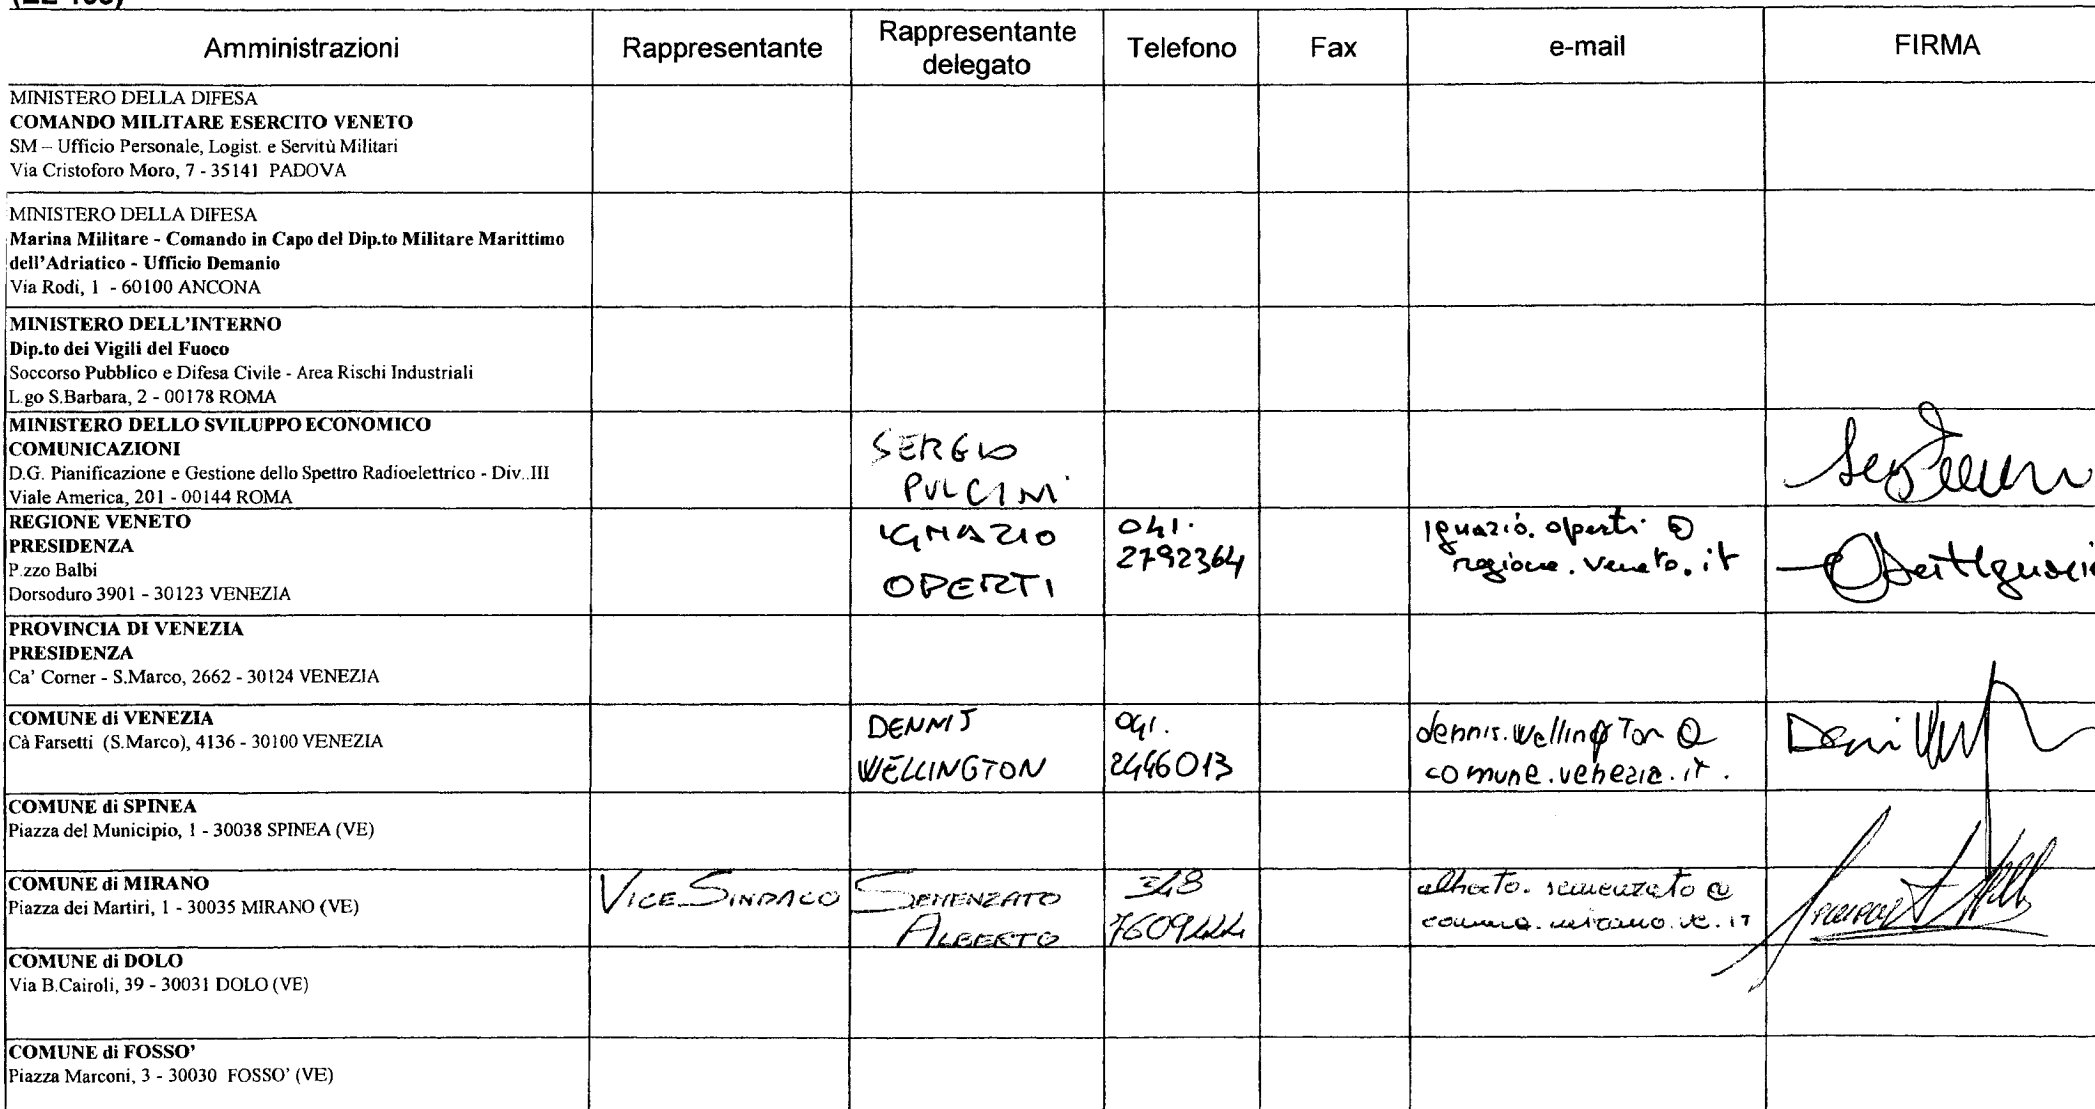 Amministrazioni
Rappresentante
Rappresentante
delegato
Telefono
Fax
e-mail
FIRMA
MINISTERO DELLA DIFESA
COMANDO MILITARE ESERCITO VENETO
SM – Ufficio Personale, Logist. e Servitù Militari
Via Cristoforo Moro, 7 - 35141 PADOVA
MINISTERO DELLA DIFESA
Marina Militare - Comando in Capo del Dip.to Militare Marittimo
dell'Adriatico - Ufficio Demanio
Via Rodi, 1 - 60100 ANCONA
MINISTERO DELL'INTERNO
Dip.to dei Vigili del Fuoco
Soccorso Pubblico e Difesa Civile - Area Rischi Industriali
L.go S.Barbara, 2 - 00178 ROMA
MINISTERO DELLO SVILUPPO ECONOMICO
COMUNICAZIONI
D.G. Pianificazione e Gestione dello Spettro Radioelettrico - Div..III
Viale America, 201 - 00144 ROMA
SERGIO
PULCINI
REGIONE VENETO
PRESIDENZA
P.zzo Balbi
Dorsoduro 3901 - 30123 VENEZIA
IGNAZIO
OPERTI
041.
2792364
ignazio.operti @
regione.veneto.it
PROVINCIA DI VENEZIA
PRESIDENZA
Ca' Corner - S.Marco, 2662 - 30124 VENEZIA
COMUNE di VENEZIA
Cà Farsetti (S.Marco), 4136 - 30100 VENEZIA
DENNIS
WELLINGTON
041.
2446013
dennis.wellington @
comune.venezia.it.
COMUNE di SPINEA
Piazza del Municipio, 1 - 30038 SPINEA (VE)
COMUNE di MIRANO
Piazza dei Martiri, 1 - 30035 MIRANO (VE)
VICE SINDACO
SEMENZATO
ALBERTO
348
7609444
alberto.semenzato @
comune.mirano.ve.it
COMUNE di DOLO
Via B.Cairoli, 39 - 30031 DOLO (VE)
COMUNE di FOSSO'
Piazza Marconi, 3 - 30030 FOSSO' (VE)